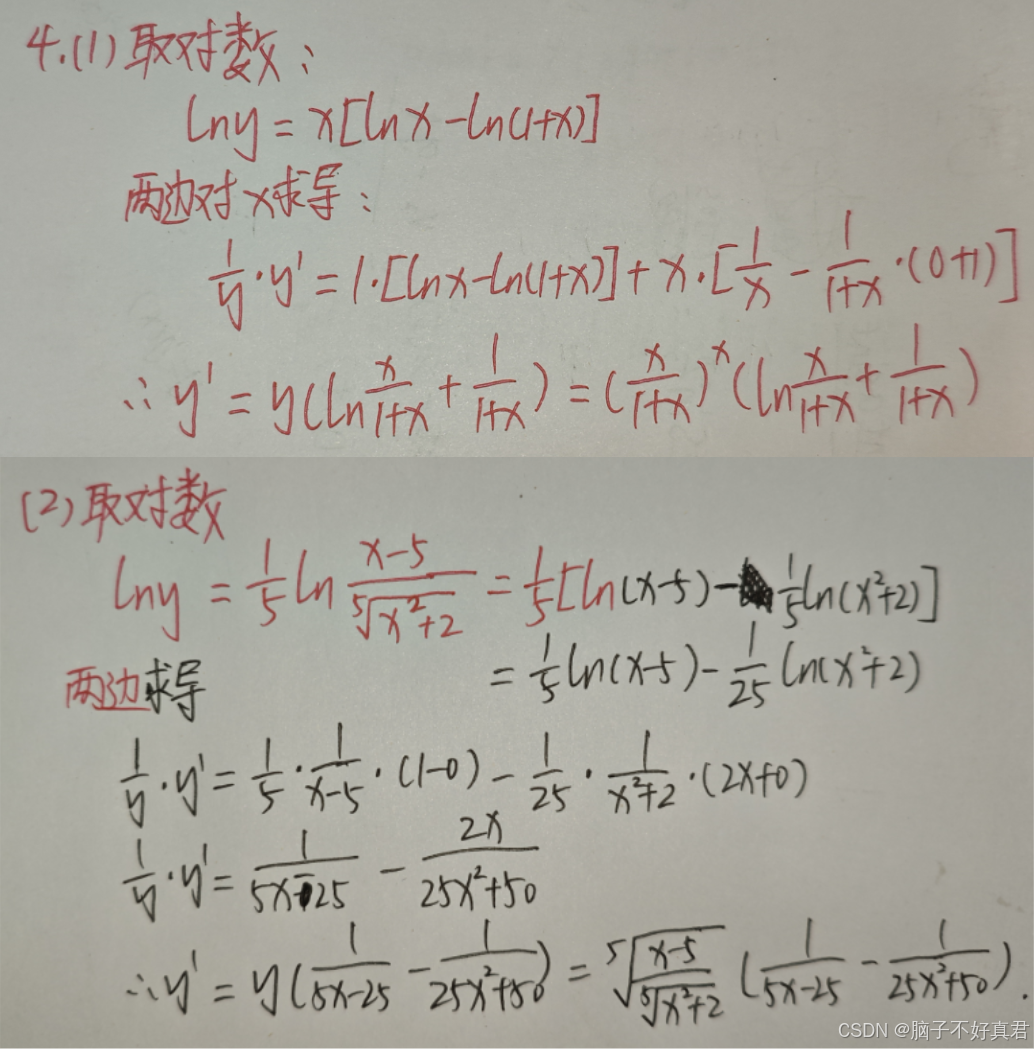 4.(1)取对数：
lny = x[lnx - ln(1+x)]
两边对x求导：
1/y · y' = 1·[lnx - ln(1+x)] + x·[1/x - 1/(1+x) ·(0+1)]
∴ y' = y(ln x/(1+x) + 1/(1+x)) = (x/(1+x))^x (ln x/(1+x) + 1/(1+x))
(2)取对数
lny = 1/5 ln (x-5)/⁵√(x²+2) = 1/5[ln(x-5) - 1/5 ln(x²+2)]
= 1/5 ln(x-5) - 1/25 ln(x²+2)
两边求导
1/y · y' = 1/5 · 1/(x-5) · (1-0) - 1/25 · 1/(x²+2) · (2x+0)
1/y · y' = 1/(5x-25) - 2x/(25x²+50)
∴ y' = y(1/(5x-25) - 1/(25x²+50)) = ⁵√((x-5)/⁵√(x²+2)) (1/(5x-25) - 1/(25x²+50)).
CSDN @脑子不好真君